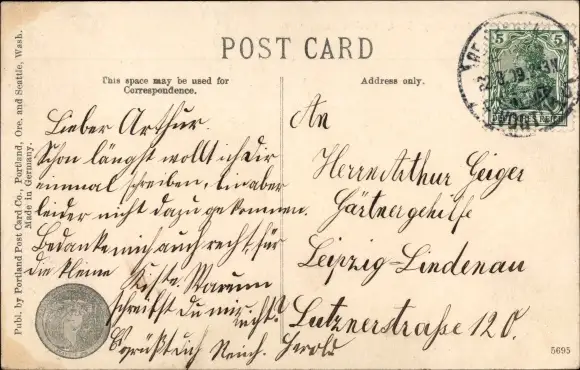 POST CARD
This space may be used for
Correspondence.
Address only.
Publ. by Portland Post Card Co., Portland, Ore. and Seattle, Wash.
Made in Germany.
Lieber Arthur.
Schon längst wollt ich dir
einmal schreiben, bin aber
leider nicht dazu gekommen.
Bedanke mich auch recht für
die kleine Kiste. Warum
schreibst du mir nicht?
Es grüßt dich Heinr. Herold
An
Herrn Arthur Geiger
Gärtnergehilfe
Leipzig-Lindenau
Lutznerstraße 120.
5 5
5695